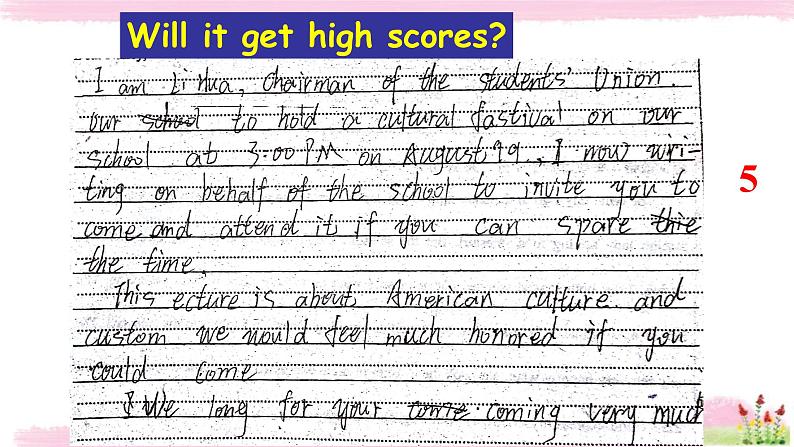 Will it get high scores?
I am Li Hua, chairman of the students' Union.
our school to hold a cultural fastival on our
school at 3:00 PM on August 99, I mow wri-
ting on behalf of the school to invite you to
come and attend it, if you can spare thie
the time.
This ecture is about American culture and
custom we would feel much honored if you
could come
I We long for your come coming very much
5